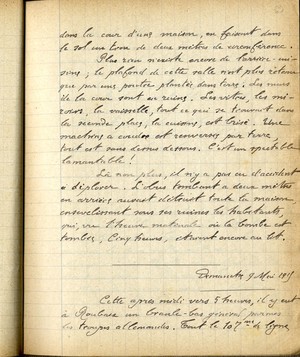 dans la cour d'une maison, en faisant dans
le sol un trou de deux mètres de circonférence.
Plus rien n'existe encore de l'arrière-cui-
sine, le plafond de cette salle n'est plus retenu
que par une poutre plantée dans l'axe. Les murs
de la cour sont en ruines. Les vitres, les mi-
roirs, la vaisselle, tout ce qui se trouvait dans
la seconde place, la cuisine, est brisé. Une
machine à coudre est renversée par terre,
tout est sens dessus dessous. C'est un spectacle
lamentable!
Là non plus, il n'y a pas eu d'accident
à déplorer. L'obus tombant à deux mètres
en arrière aurait détruit toute la maison,
ensevelissant sous ses ruines les habitants
qui, vu l'heure matinale où la bombe est
tombée, cinq heures, étaient encore au lit.
Dimanche 9 Mai 1915
Cette après midi vers 5 heures, il y eut
à Roubaix un branle-bas général parmi
les troupes allemandes. Tout le 107me de ligne